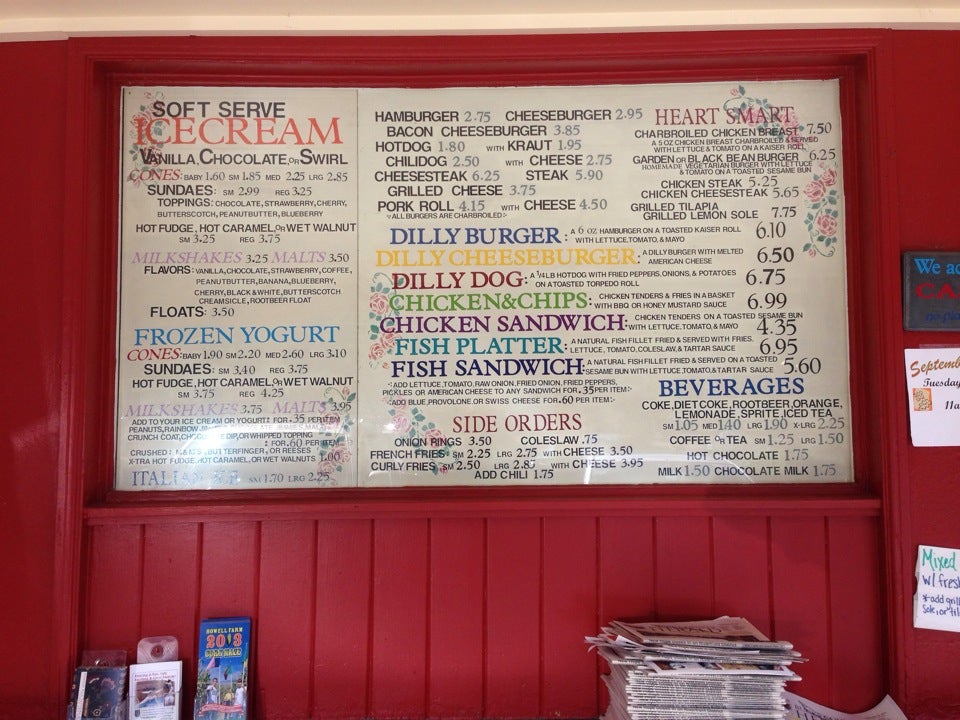 SOFT SERVE
ICECREAM
VANILLA, CHOCOLATE, OR SWIRL
CONES: BABY 1.60 SM 1.85 MED 2.25 LRG 2.85
SUNDAES: SM 2.99 REG 3.25
TOPPINGS: CHOCOLATE, STRAWBERRY, CHERRY,
BUTTERSCOTCH, PEANUTBUTTER, BLUEBERRY
HOT FUDGE, HOT CARAMEL, OR WET WALNUT
SM 3.25 REG 3.75
MILKSHAKES 3.25 MALTS 3.50
FLAVORS: VANILLA, CHOCOLATE, STRAWBERRY, COFFEE,
PEANUTBUTTER, BANANA, BLUEBERRY,
CHERRY, BLACK & WHITE, BUTTERSCOTCH
CREAMSICLE, ROOTBEER FLOAT
FLOATS: 3.50
FROZEN YOGURT
CONES: BABY 1.90 SM 2.20 MED 2.60 LRG 3.10
SUNDAES: SM 3.40 REG 3.75
HOT FUDGE, HOT CARAMEL, OR WET WALNUT
SM 3.75 REG 4.25
MILKSHAKES 3.75 MALTS 3.95
ADD TO YOUR ICE CREAM OR YOGURT: FOR .35 PER ITEM
PEANUTS, RAINBOW
CRUNCH COAT, CHOCOLATE DIP, OR WHIPPED TOPPING
: FOR .60 PER ITEM
CRUSHED: M&M'S, BUTTERFINGER, OR REESES
X-TRA HOT FUDGE, HOT CARAMEL, OR WET WALNUTS 1.00
SM 1.70 LRG 2.25
HAMBURGER 2.75 CHEESEBURGER 2.95
BACON CHEESEBURGER 3.85
HOTDOG 1.80 WITH KRAUT 1.95
CHILIDOG 2.50 WITH CHEESE 2.75
CHEESESTEAK 6.25 STEAK 5.90
GRILLED CHEESE 3.75
PORK ROLL 4.15 WITH CHEESE 4.50
<ALL BURGERS ARE CHARBROILED>
HEART SMART
CHARBROILED CHICKEN BREAST 7.50
A 5 OZ CHICKEN BREAST CHARBROILED & SERVED
WITH LETTUCE & TOMATO ON A KAISER ROLL
GARDEN OR BLACK BEAN BURGER 6.25
HOMEMADE VEGETARIAN BURGER WITH LETTUCE
& TOMATO ON A TOASTED SESAME BUN
CHICKEN STEAK 5.25
CHICKEN CHEESESTEAK 5.65
GRILLED TILAPIA
GRILLED LEMON SOLE 7.75
DILLY BURGER: A 6 OZ HAMBURGER ON A TOASTED KAISER ROLL 6.10
WITH LETTUCE, TOMATO, & MAYO
DILLY CHEESEBURGER: A DILLY BURGER WITH MELTED 6.50
AMERICAN CHEESE
DILLY DOG: A 1/4LB HOTDOG WITH FRIED PEPPERS, ONIONS, & POTATOES 6.75
ON A TOASTED TORPEDO ROLL
CHICKEN&CHIPS: CHICKEN TENDERS & FRIES IN A BASKET 6.99
WITH BBQ OR HONEY MUSTARD SAUCE
CHICKEN SANDWICH: CHICKEN TENDERS ON A TOASTED SESAME BUN
WITH LETTUCE, TOMATO, & MAYO 4.35
FISH PLATTER: A NATURAL FISH FILLET FRIED & SERVED WITH FRIES,
LETTUCE, TOMATO, COLESLAW, & TARTAR SAUCE 6.95
FISH SANDWICH: A NATURAL FISH FILLET FRIED & SERVED ON A TOASTED
SESAME BUN WITH LETTUCE, TOMATO, & TARTAR SAUCE 5.60
<ADD LETTUCE, TOMATO, RAW ONION, FRIED ONION, FRIED PEPPERS,
PICKLES OR AMERICAN CHEESE TO ANY SANDWICH FOR .35 PER ITEM>
<ADD BLUE, PROVOLONE, OR SWISS CHEESE FOR .60 PER ITEM>
SIDE ORDERS
ONION RINGS 3.50 COLESLAW .75
FRENCH FRIES SM 2.25 LRG 2.75 WITH CHEESE 3.50
CURLY FRIES SM 2.50 LRG 2.85 WITH CHEESE 3.95
ADD CHILI 1.75
BEVERAGES
COKE, DIET COKE, ROOTBEER, ORANGE,
LEMONADE, SPRITE, ICED TEA
SM 1.05 MED 1.40 LRG 1.90 X-LRG 2.25
COFFEE OR TEA SM 1.25 LRG 1.50
HOT CHOCOLATE 1.75
MILK 1.50 CHOCOLATE MILK 1.75
We
Septemb
Tuesday
Mixed
w/ fresh
HOWELL FARM
2013
CALENDAR